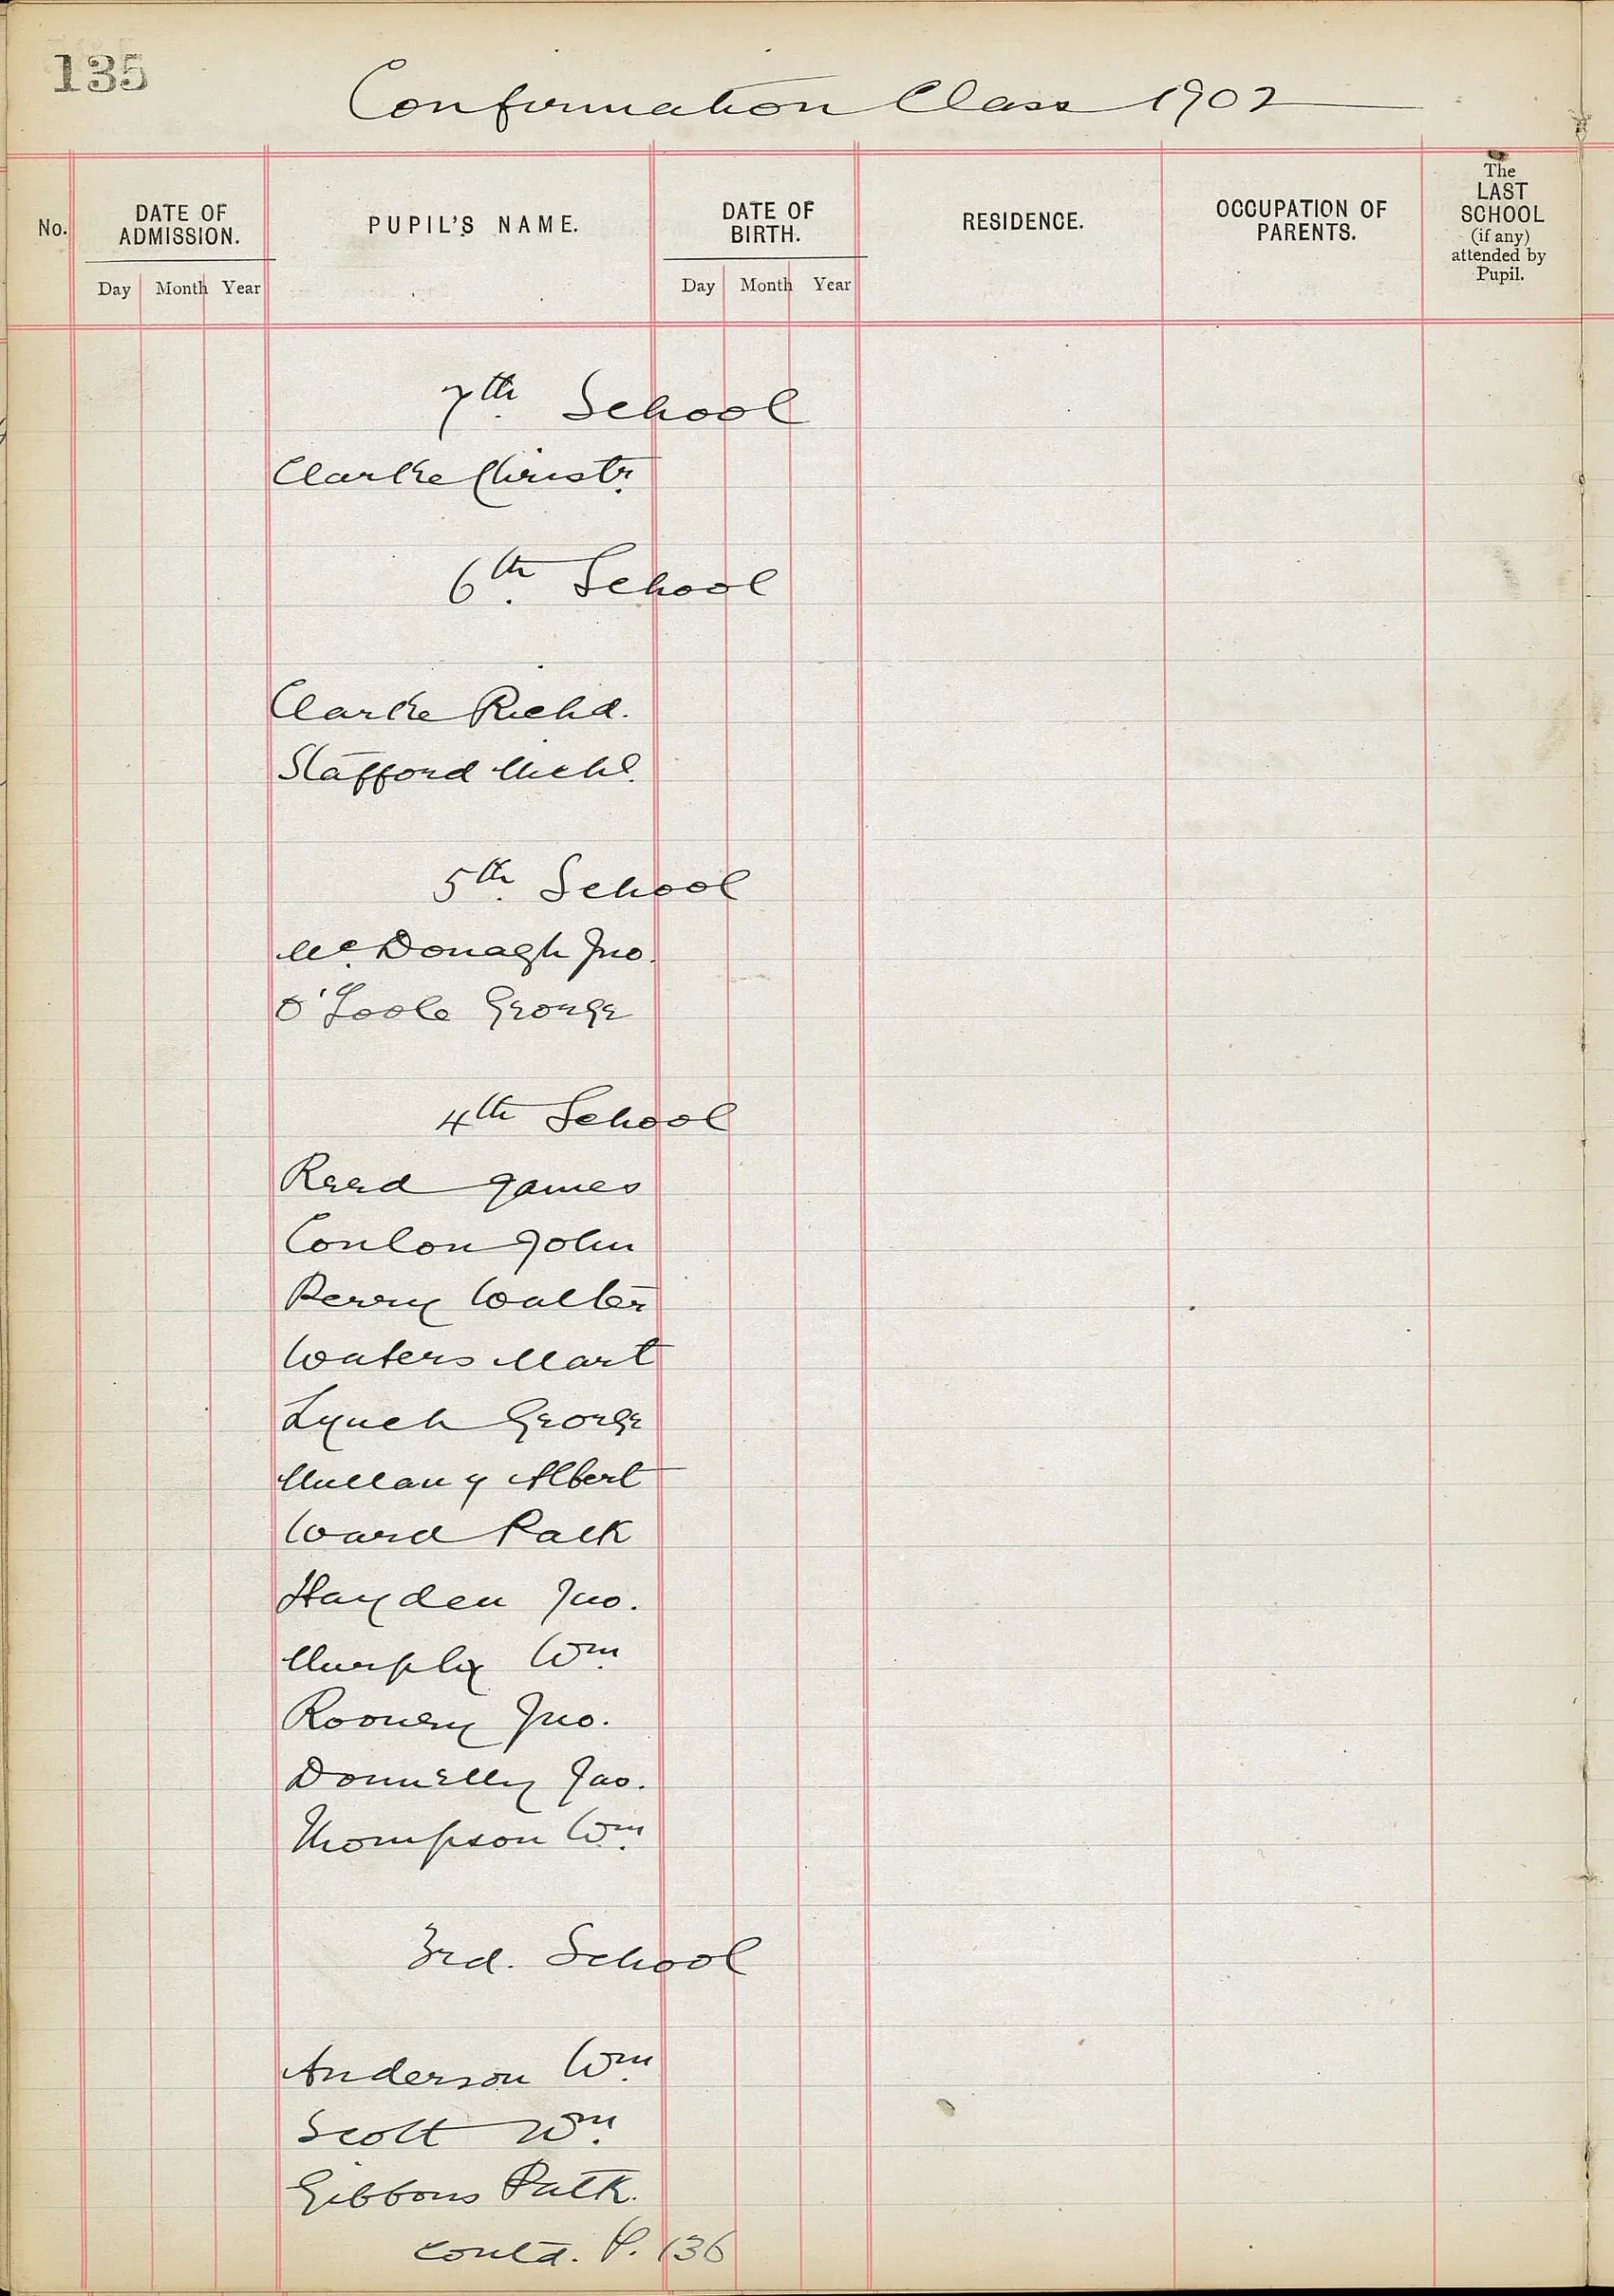 135
Confirmation Class 1902
No.
DATE OF ADMISSION.
Day Month Year
PUPIL'S NAME.
DATE OF BIRTH.
Day Month Year
RESIDENCE.
OCCUPATION OF PARENTS.
The LAST SCHOOL (if any) attended by Pupil.
7th. School
Clarke Christr.
6th. School
Clarke Richd.
Stafford Michl.
5th. School
Mc. Donagh Jno.
O'Toole George
4th School
Reed James
Conlon John
Perry Walter
Waters Mart
Lynch George
Mullany Albert
Ward Patk
Hayden Jno.
Murphy Wm.
Rooney Jno.
Donnelly Jas.
Thompson Wm.
3rd. School
Anderson Wm.
Scott Wm.
Gibbons Patk.
contd. P. 136